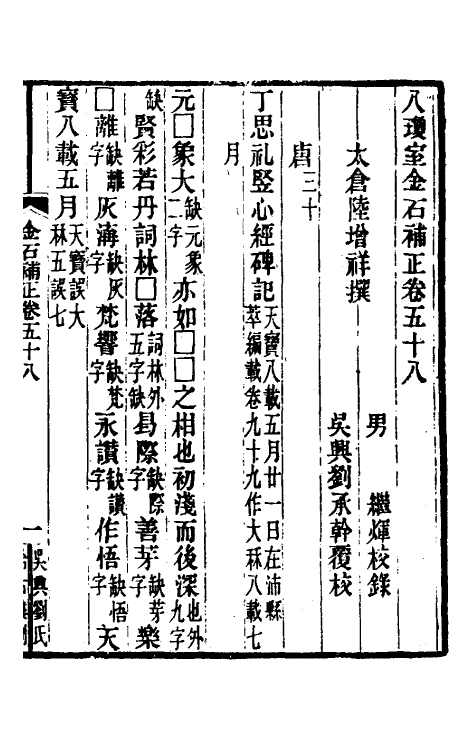 八瓊室金石補正卷五十八
太倉陸增祥撰
男　繼煇校錄
吳興劉承幹覆校
唐三十
丁思礼竪心經碑記天寶八載五月廿一日在沛縣萃編載卷九十九作大秝八載七
月
元□象大缺元象二字亦如□□之相也初淺而後深也外九字
缺賢彩若丹詞林□落詞林外五字缺曷際缺際字善芽缺芽字樂
□離缺離字灰海缺灰字梵響缺梵字永讃缺讃字作悟缺悟字天
寶八載五月天寶誤大秝五誤七
金石補正卷五十八
一
吳興劉氏